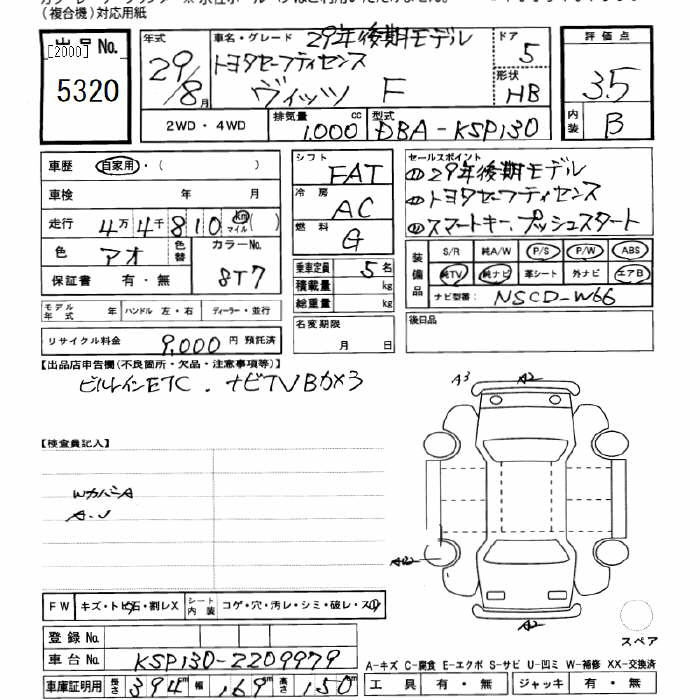 （複合機）対応用紙
出品No.
[2000]
5320
年式
29/8月
車名・グレード 29年後期モデル
トヨタセーフティセンス
ヴィッツ F
ドア
5
形状
HB
評価点
3.5
内装
B
2WD・4WD
排気量 1.000 cc
型式 DBA-KSP130
車歴 自家用・( )
車検 年 月
走行 4万4千810 km マイル ( )
色 アオ 色替 カラーNo. 8T7
保証書 有・無
モデル年式 年 ハンドル 左・右 ディーラー・並行
リサイクル料金 9,000 円 預託済
シフト FAT
冷房 AC
燃料 G
乗車定員 5名
積載量 kg
総重量 kg
名変期限
月 日
セールスポイント
①29年後期モデル
①トヨタセーフティセンス
①スマートキー、プッシュスタート
装備品
S/R 純A/W P/S P/W ABS
純TV 純ナビ 革シート 外ナビ エアB
ナビ型番： NSCD-W66
後日品
【出品店申告欄（不良箇所・欠品・注意事項等）】
ビルトインETC. ナビTVBカメラ
【検査員記入】
Wカバー A
A.U
A3
A2
A2
FW キズ・トビ石・割レX シート内装 コゲ・穴・汚レ・シミ・破レ・スレ
登録No.
車台No. KSP130-2209979
車庫証明用 長さ 394 cm 幅 169 cm 高さ 150 cm
スペア
A-キズ C-腐食 E-エクボ S-サビ U-凹ミ W-補修 XX-交換済
工具 有・無 ジャッキ 有・無